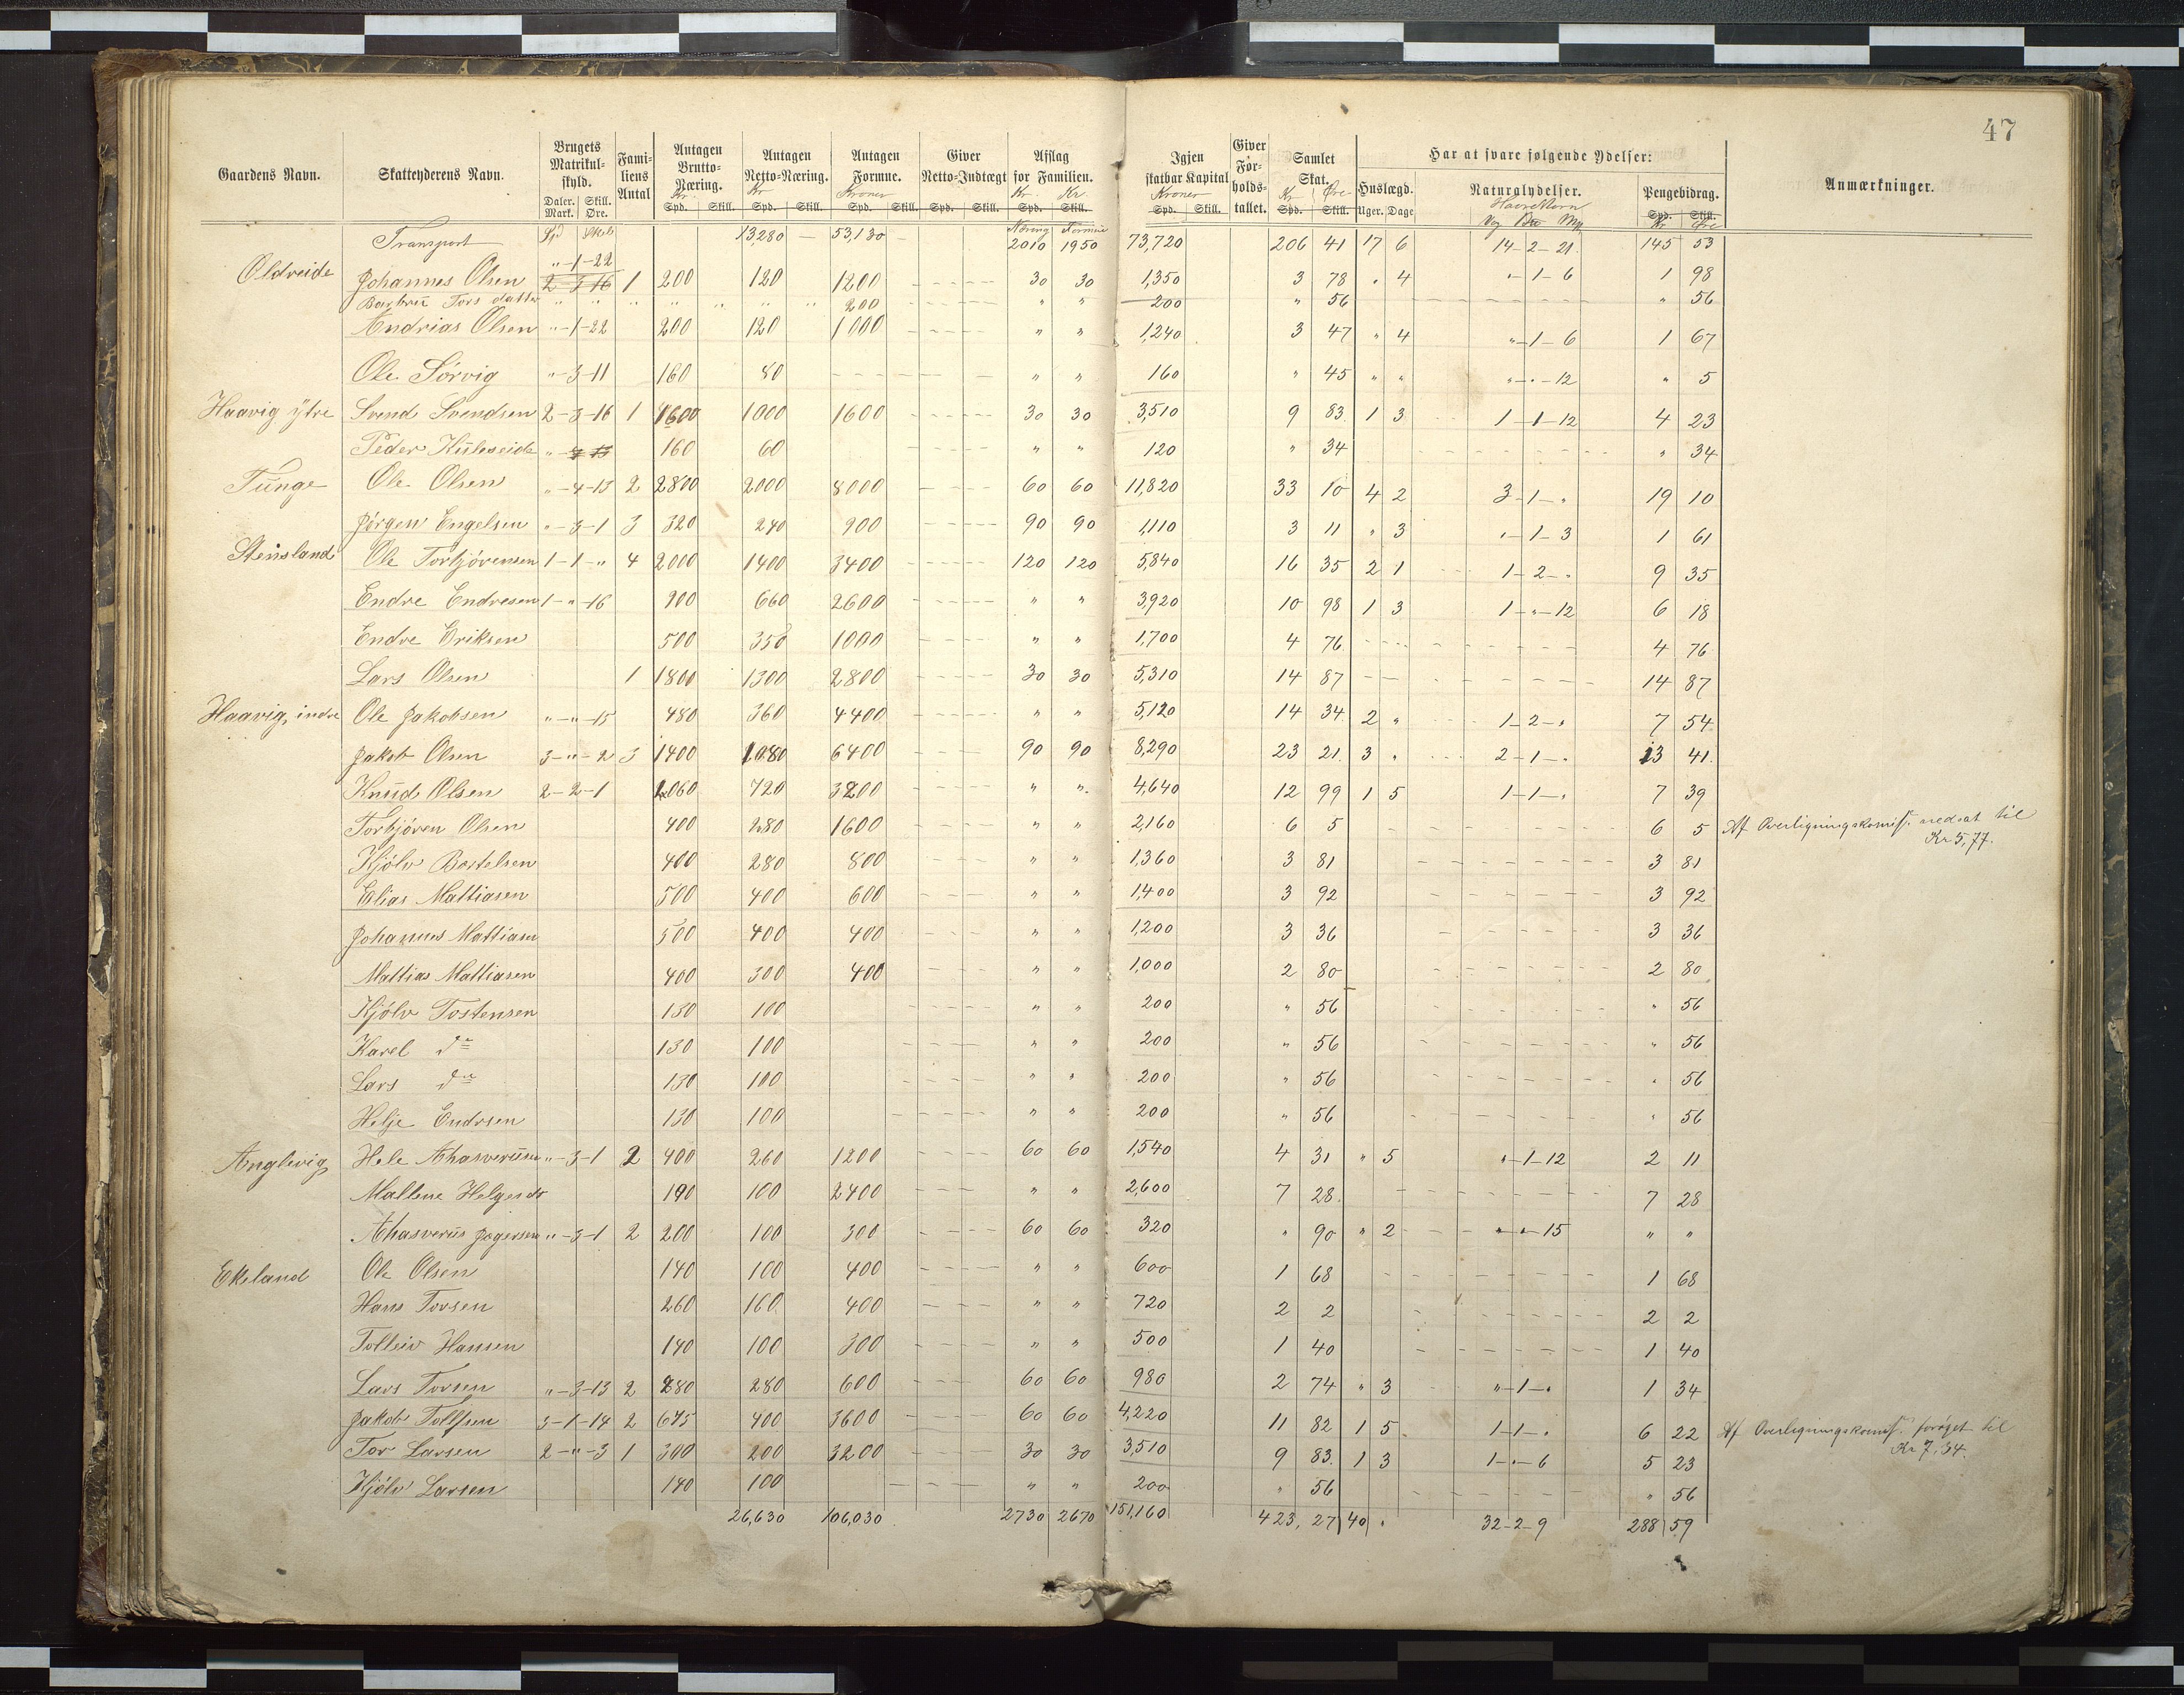 47
Gaardens Navn. Skatteyderens Navn. Brugets Matrikulskyld. Familiens Antal Antagen Brutto-Næring. Antagen Netto-Næring. Antagen Formue. Giver Netto-Indtægt Afslag for Familien. Igjen skatbar Kapital Giver Forholdstallet. Samlet Skat. Har at svare følgende Ydelser: Anmærkninger.
Huslægd. Naturalydelser. Pengebidrag.
Daler. Mark. Skill. Øre. Kr. Spd. Skill. Kr Spd. Skill. Kroner Spd. Skill. Spd. Skill. Kr Spd. Kr. Skill. Kroner Spd. Skill. Kr Spd. Øre Skill. Uger. Dage Havrekorn Spd. Skill.
Næring Formue
Transport 13,280 — 53,130 — 2010 1950 73,720 206 41 17 6 14-2-21. 145 53
Oldreide Johannes Olsen "-1-22 2-3-16 1 200 120 1200 30 30 1,350 3 78 " 4 "-1-6 1 98
Barbru Tors datter " " " " " " 200 " " 200 " 56 " 56
Andrias Olsen "-1-22 200 120 1000 " " 1,240 3 47 " 4 "-1-6 1 67
Ole Sørvig "-3-11 160 80 " " 160 " 45 " " "-"-12 " 5
Haavig ytre Svend Svendsen 2-3-16 1 1600 1000 1600 30 30 3,510 9 83 1 3 1-1-12 4 23
Peder Kuleseide " 160 60 " " 120 " 34 " 34
Tunge Ole Olsen "-4-13 2 2800 2000 8000 60 60 11,820 33 10 4 2 3-1-" 19 10
Jørgen Engelsen "-3-1 3 320 240 900 90 90 1,110 3 11 " 3 "-1-3 1 61
Stensland Ole Torbjörensen 1-1-" 4 2000 1400 3400 120 120 5,840 16 35 2 1 1-2-" 9 35
Endre Endresen 1-"-16 900 660 2600 " " 3,920 10 98 1 3 1-"-12 6 18
Endre Eriksen 500 350 1000 " " 1,700 4 76 4 76
Lars Olsen 1 1800 1300 2800 30 30 5,310 14 87 14 87
Haavig, indre Ole Jakobsen "-"-15 480 360 4400 " " 5,120 14 34 2 " 1-2-" 7 54
Jakob Olsen 3-"-2 3 1400 1080 6400 90 90 8,290 23 21 3 " 2-1-" 13 41
Knud Olsen 2-2-1 1060 720 3200 " " 4,640 12 99 1 5 1-1-" 7 39
Torbjören Olsen 400 280 1600 " " 2,160 6 5 6 5 Af Overligningskomiss. nedsat til
Kr 5,77.
Kjølv Bertelsen 400 280 800 " " 1,360 3 81 3 81
Elias Mattiasen 500 400 600 " " 1,400 3 92 3 92
Johannes Mattiasen 500 400 400 " " 1,200 3 36 3 36
Mattias Mattiasen 400 300 400 " " 1,000 2 80 2 80
Kjølv Tostensen 130 100 " " 200 " 56 " 56
Karel do 130 100 " " 200 " 56 " 56
Lars do 130 100 " " 200 " 56 " 56
Helje Endresen 130 100 " " 200 " 56 " 56
Anglevig Hele Ahasverusen "-3-1 2 400 260 1200 60 60 1,540 4 31 " 5 "-1-12 2 11
Mallene Helgesdt 190 100 2400 " " 2,600 7 28 7 28
Ahasverus Jørgensen "-3-1 2 200 100 300 60 60 320 " 90 " 2 "-"-15 " "
Ekeland Ole Olsen 140 100 400 " " 600 1 68 1 68
Hans Torsen 260 160 400 " " 720 2 2 2 2
Tolleiv Hansen 140 100 300 " " 500 1 40 1 40
Lars Torsen "-3-13 2 280 280 600 60 60 980 2 74 " 3 "-1-" 1 34
Jakob Tollfsen 3-1-14 2 675 400 3600 60 60 4,220 11 82 1 5 1-1-" 6 22 Af Overligningskomiss. forøget til
Kr 7,34.
Tor Larsen 2-"-3 1 300 200 3200 30 30 3,510 9 83 1 3 1-"-6 5 23
Kjølv Larsen 140 100 " " 200 " 56 " 56
26,630 106,030 2730 2670 151,160 423,27 40 " 32-2-9 288 59